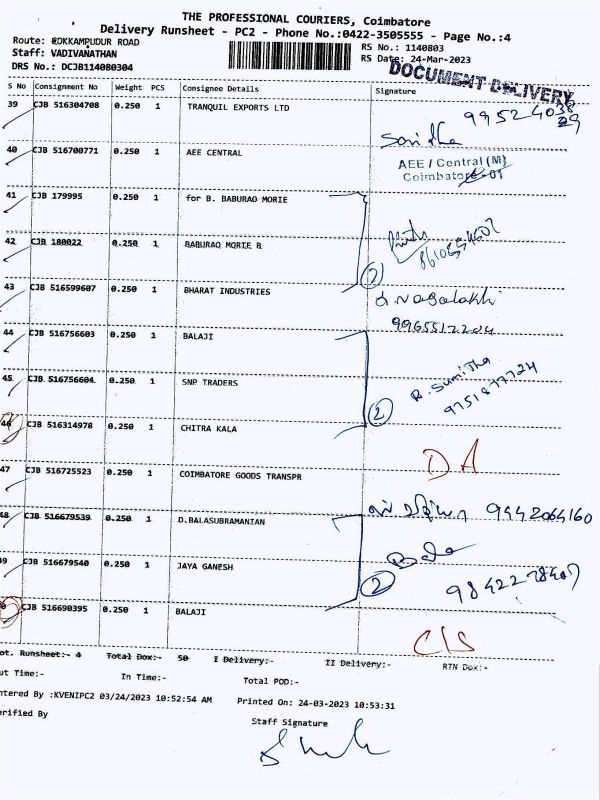 THE PROFESSIONAL COURIERS, Coimbatore
Delivery Runsheet - PC2 - Phone No.:0422-3505555 - Page No.:4
Route: @OKKAMPUDUR ROAD
RS No.: 1140803
Staff: VADIVANATHAN
RS Date: 24-Mar-2023
DRS No.: DCJB114080304
DOCUMENT DELIVERY
S No Consignment No Weight PCS Consignee Details Signature
39 CJB 516304708 0.250 1 TRANQUIL EXPORTS LTD
Sonitha
40 CJB 516700771 0.250 1 AEE CENTRAL
AEE / Central (M)
Coimbatore-01
41 CJB 179995 0.250 1 for B. BABURAO MORIE
42 CJB 180022 0.250 1 BABURAO MORIE B
2
43 CJB 516599607 0.250 1 BHARAT INDUSTRIES
44 CJB 516756603 0.250 1 BALAJI
45 CJB 516756604 0.250 1 SNP TRADERS
B. Sunitha
9751877724
2
46 CJB 516314978 0.250 1 CHITRA KALA
DA
47 CJB 516725523 0.250 1 COIMBATORE GOODS TRANSPR
9442064160
48 CJB 516679539 0.250 1 D.BALASUBRAMANIAN
Bala
49 CJB 516679540 0.250 1 JAYA GANESH
2
CJB 516690395 0.250 1 BALAJI
C/S
ot. Runsheet:- 4 Total Dox:- 50 I Delivery:- II Delivery:- RTN Dox:-
ut Time:- In Time:- Total POD:-
ntered By :KVENIPC2 03/24/2023 10:52:54 AM Printed On: 24-03-2023 10:53:31
erified By Staff Signature